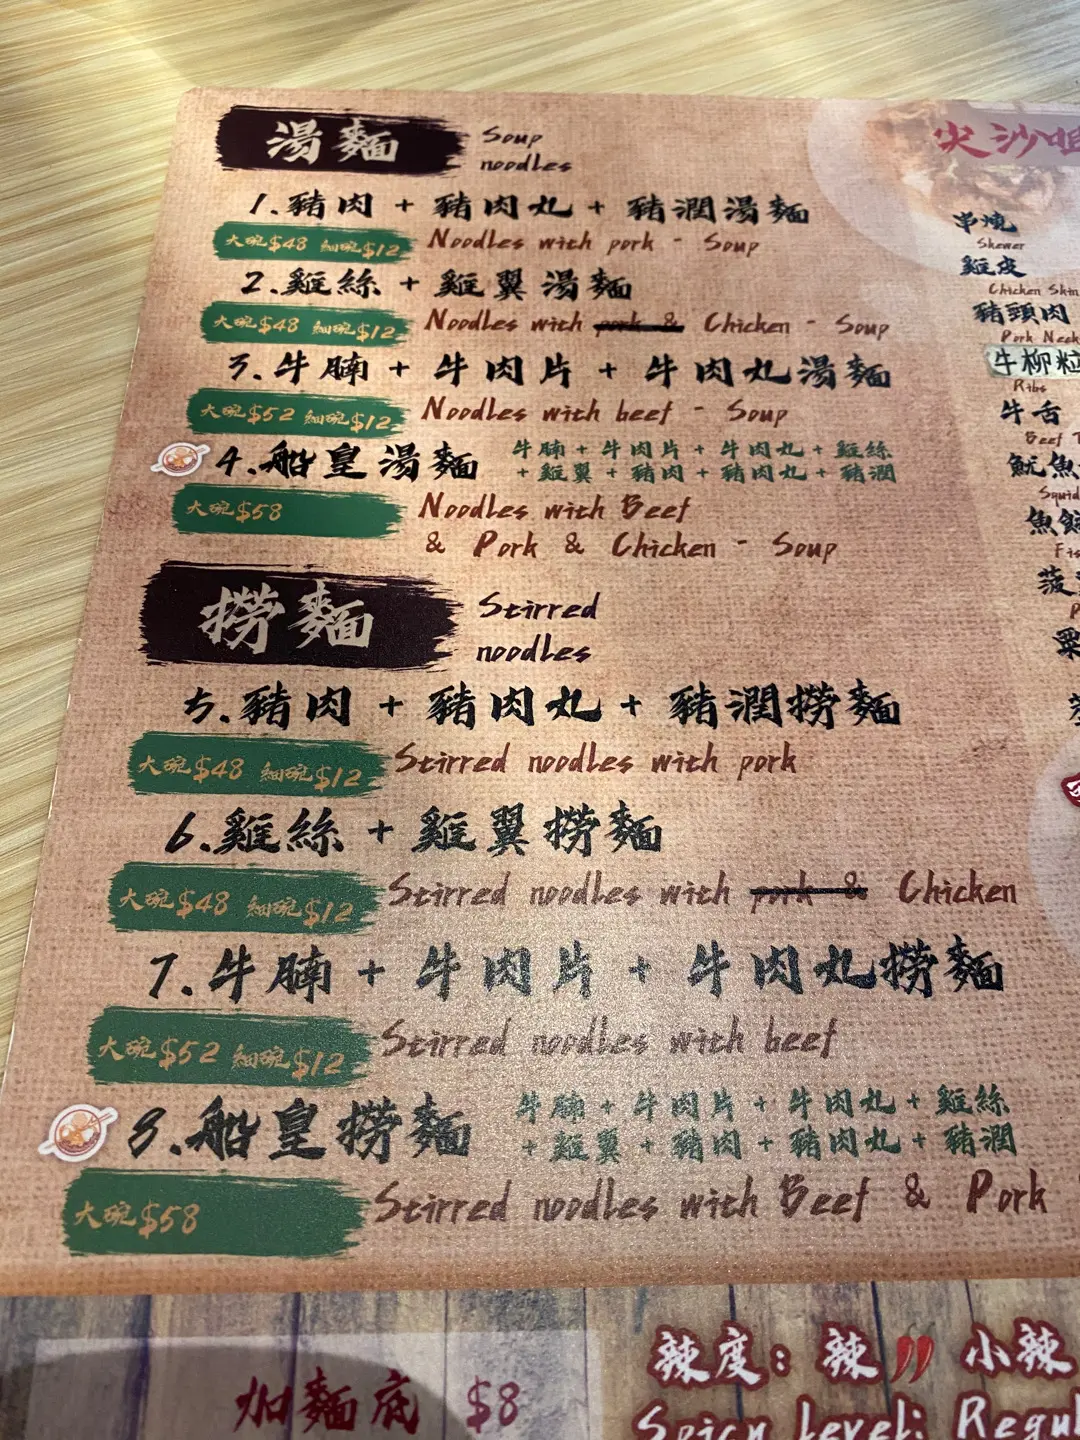 湯麵
Soup
noodles
1.豬肉 + 豬肉丸 + 豬潤湯麵
大碗$48 細碗$12
Noodles with pork - Soup
2.雞絲 + 雞翼湯麵
大碗$48 細碗$12
Noodles with pork & Chicken - Soup
3.牛腩 + 牛肉片 + 牛肉丸湯麵
大碗$52 細碗$12
Noodles with beef - Soup
4.船皇湯麵
牛腩 + 牛肉片 + 牛肉丸 + 雞絲
+ 雞翼 + 豬肉 + 豬肉丸 + 豬潤
大碗$58
Noodles with Beef
& Pork & Chicken - Soup
撈麵
Stirred
noodles
5.豬肉 + 豬肉丸 + 豬潤撈麵
大碗$48 細碗$12
Stirred noodles with pork
6.雞絲 + 雞翼撈麵
大碗$48 細碗$12
Stirred noodles with pork & Chicken
7.牛腩 + 牛肉片 + 牛肉丸撈麵
大碗$52 細碗$12
Stirred noodles with beef
8.船皇撈麵
牛腩 + 牛肉片 + 牛肉丸 + 雞絲
+ 雞翼 + 豬肉 + 豬肉丸 + 豬潤
大碗$58
Stirred noodles with Beef & Pork
尖沙咀
串燒
Skewer
雞皮
Chicken Skin
豬頭肉
Pork Neck
牛柳粒
Ribs
牛舌
Beef
魷魚
Squid
魚
菠
加麵底 $8
辣度：辣 小辣
Spicy Level: